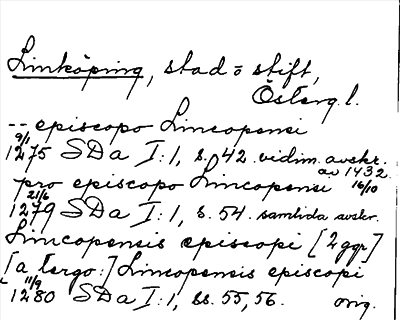 Linköping, stad o stift,
Österg. l.
-- episcopo Lincopensi
9/1
1275 SDa I:1, s. 42. vidim. avskr.
av 1432.
pro episcopo Lincopensi 16/10
21/6
1279 SDa I:1, s. 54. samtida avskr.
Lincopensis episcopi [2 ggr]
[a tergo:] Lincopensis episcopi
11/9
1280 SDa I:1, ss. 55, 56. orig.